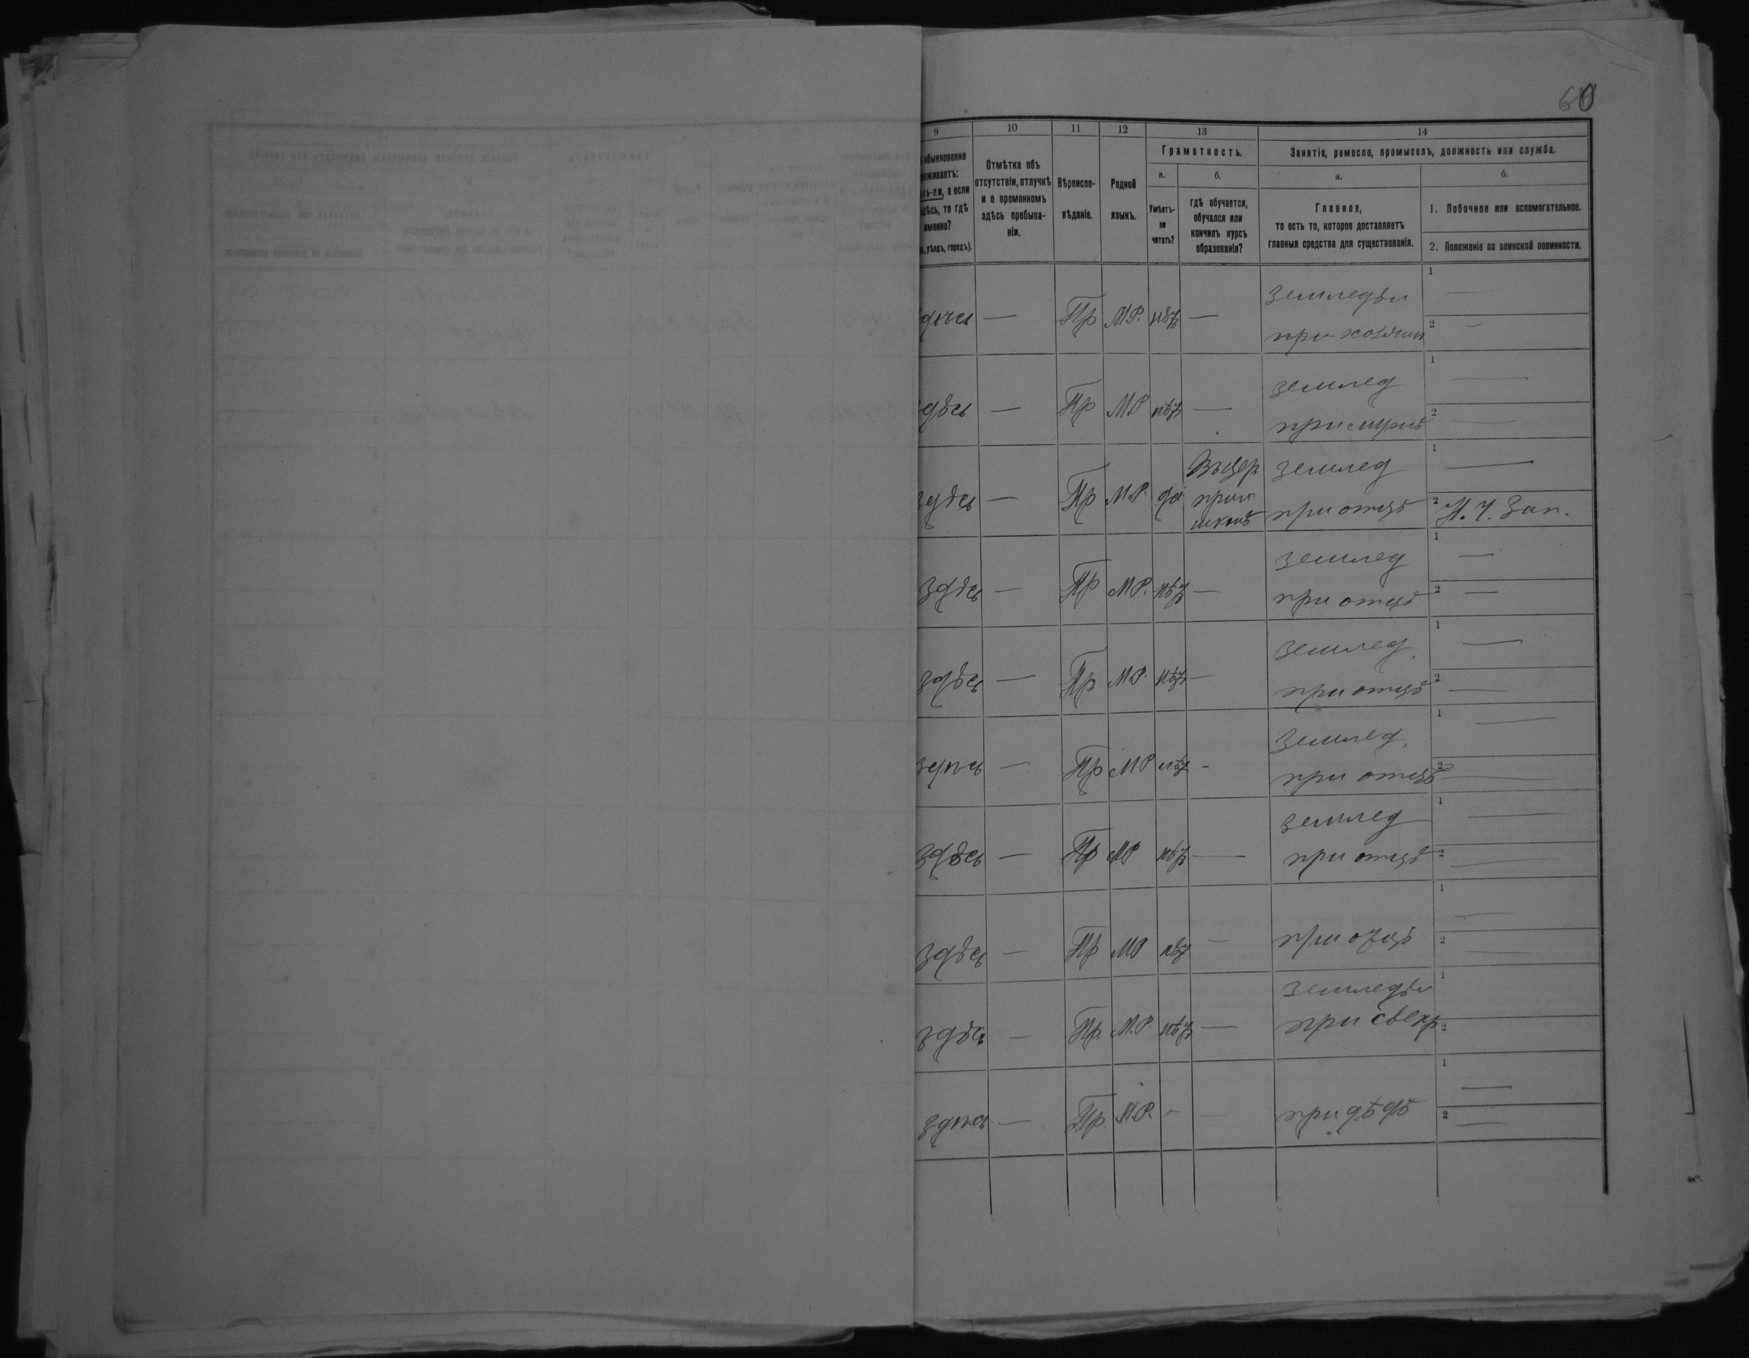 60
9 10 11 12 13 14
обыкновенно
живаетъ:
сь-ли, а если
здѣсь, то гдѣ
именно?
уѣздъ, городъ).
Отмѣтка объ
отсутствіи, отлучкѣ
и о временномъ
здѣсь пребыва-
ніи.
Вѣроиспо-
вѣданіе.
Родной
языкъ.
Грамотность.
а.
Умѣетъ-
ли
читать?
б.
гдѣ обучается,
обучался или
кончилъ курсъ
образованія?
Занятіе, ремесло, промыселъ, должность или служба.
а.
Главное,
то есть то, которое доставляетъ
главныя средства для существованія.
б.
1. Побочное или вспомогательное.
2. Положеніе по воинской повинности.
здѣсь — Пр М.Р. нѣтъ — земледѣл 1 —
при хозяинѣ 2 —
здѣсь — Пр М.Р нѣтъ — землед 1 —
при мужѣ 2 —
здѣсь — Пр М.Р. да Въ цер землед 1 —
прих при отцѣ 2
школѣ
здѣсь — Пр М.Р. нѣтъ — землед 1 —
при отцѣ 2 —
здѣсь — Пр М.Р. нѣтъ — землед. 1 —
при отцѣ 2 —
здѣсь — Пр М.Р нѣтъ - землед. 1 —
при отцѣ 2 —
здѣсь — Пр МР нѣтъ — землед 1 —
при отцѣ 2 —
здѣсь — Пр МР нѣтъ — 1 —
при отцѣ 2 —
здѣсь — Пр. М.Р. нѣтъ — земледѣл 1
при свекр 2
здѣсь — Пр. М.Р. - — 1 —
при дѣдѣ 2 —